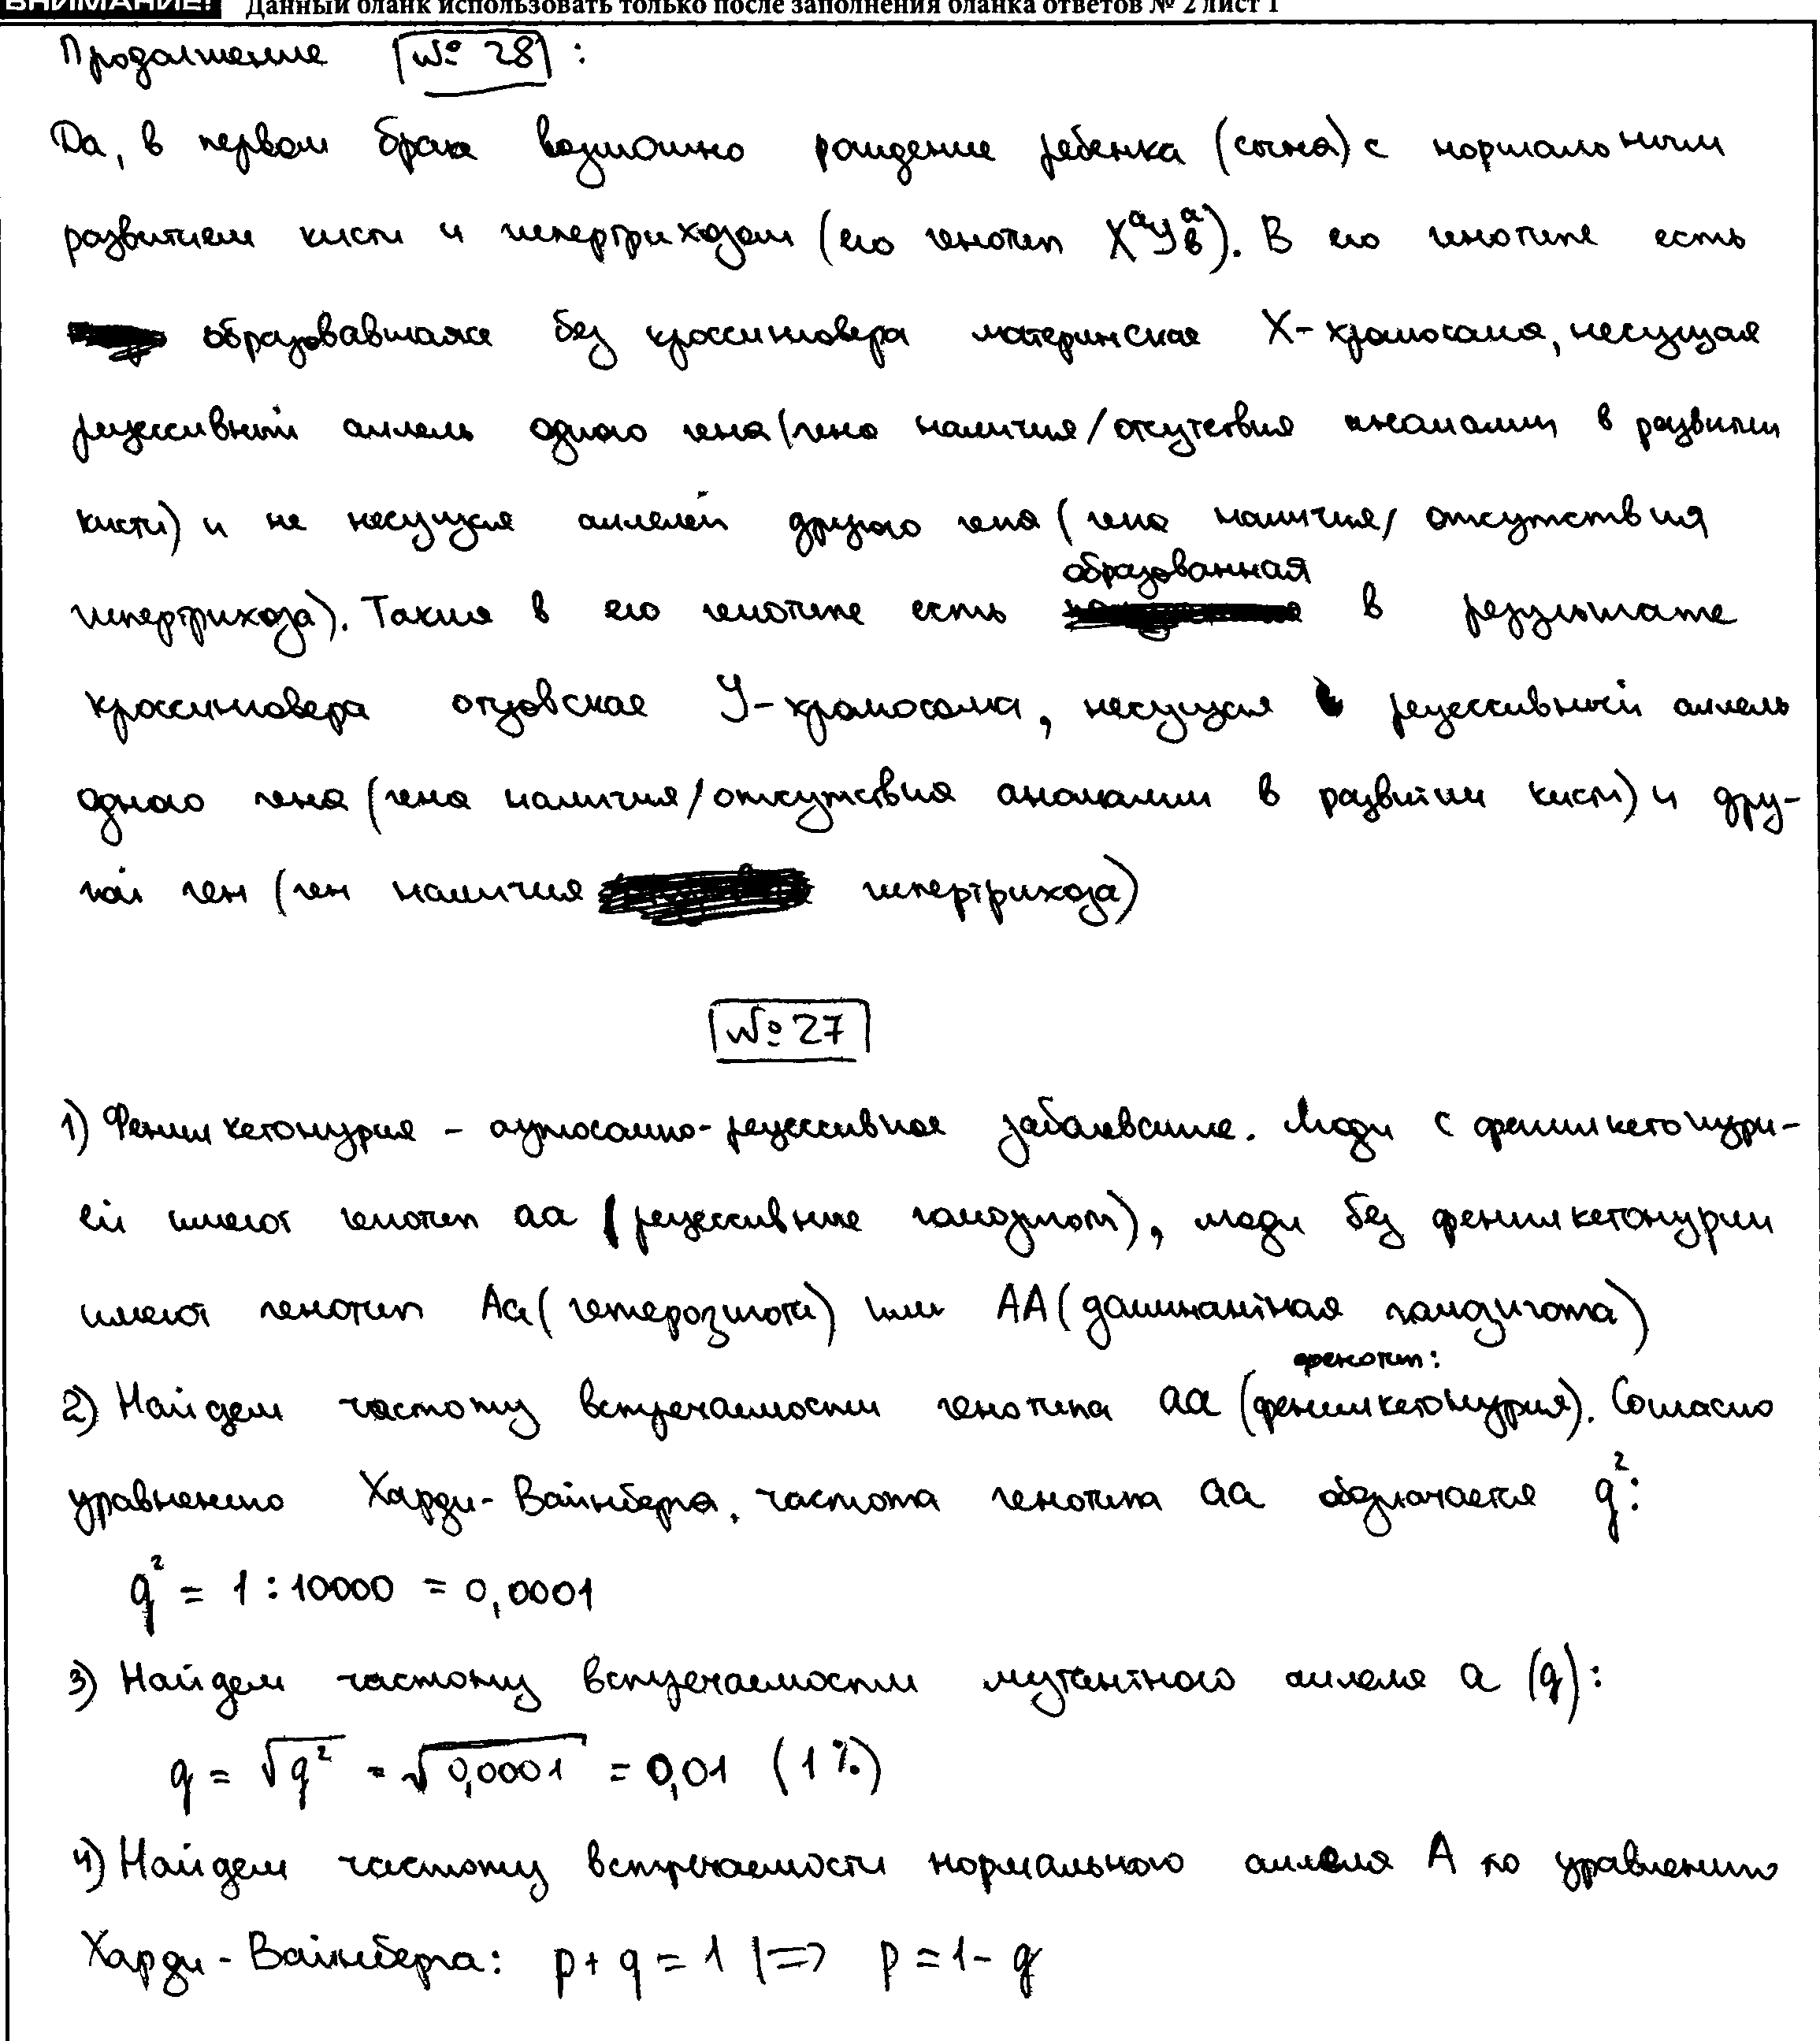 ВНИМАНИЕ! Данный бланк использовать только после заполнения бланка ответов № 2 лист 1
Продолжение №28:
Да, в первом браке возможно рождение ребенка (сына) с нормальным
развитием кисти и гипертрихозом (его генотип XᵃYᵃв). В его генотипе есть
образовавшаяся без кроссинговера материнская X-хромосома, несущая
рецессивный аллель одного гена (гена наличия/отсутствия аномалии в развитии
кисти) и не несущая аллелей другого гена (гена наличия/ отсутствия
гипертрихоза). Также в его генотипе есть образованная в результате
кроссинговера отцовская У-хромосома, несущая рецессивный аллель
одного гена (гена наличия/отсутствия аномалии в развитии кисти) и дру-
гой ген (ген наличия гипертрихоза)
№27
1) Фенилкетонурия - аутосомно-рецессивное заболевание. Люди с фенилкетонури-
ей имеют генотип aa (рецессивные гомозиготы), люди без фенилкетонурии
имеют генотип Aa (гетерозигота) или AA (доминантная гомозигота)
2) Найдем частоту встречаемости генотипа aa (фенотип: фенилкетонурия). Согласно
уравнению Харди-Вайнберга, частота генотипа aa обозначается q²:
q² = 1 : 10000 = 0,0001
3) Найдем частоту встречаемости мутантного аллеля a (q):
q = √q² = √0,0001 = 0,01 (1%)
4) Найдем частоту встречаемости нормального аллеля A по уравнению
Харди-Вайнберга: p + q = 1 |=> p = 1 - q